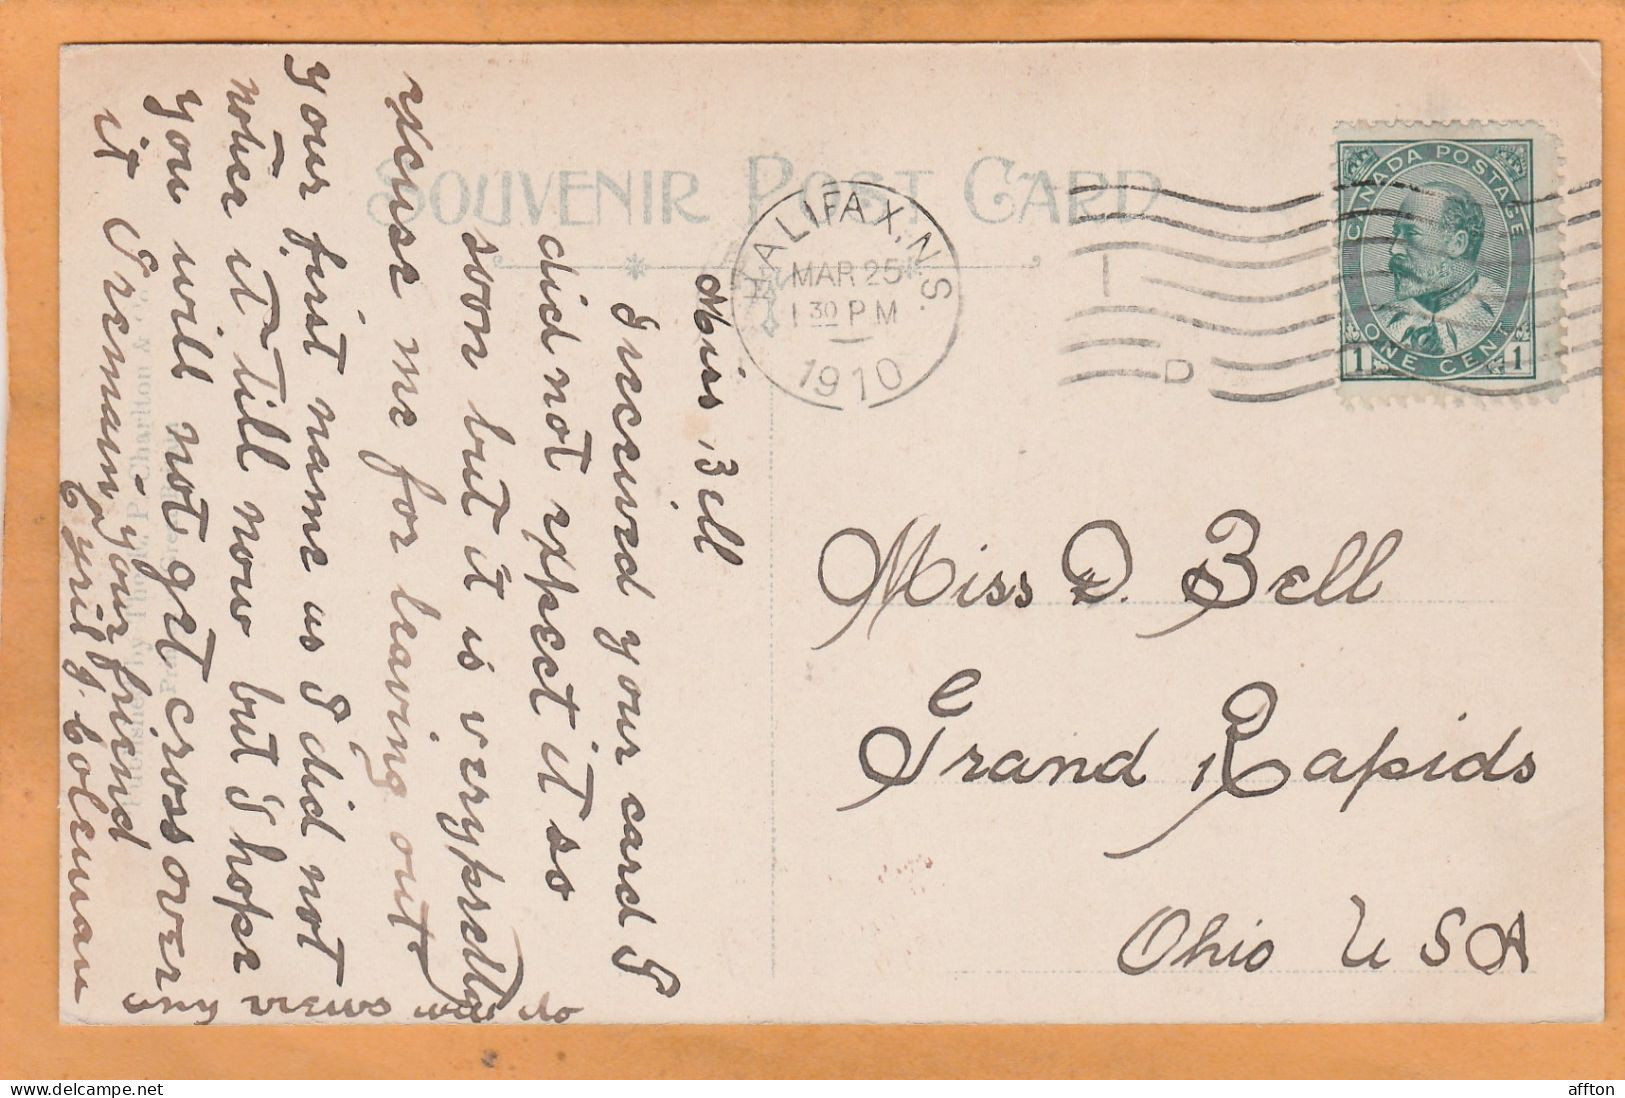 SOUVENIR POST CARD
HALIFAX, N.S.
MAR 25
1 30 PM
1910
D
CANADA POSTAGE
ONE CENT
1 1
Miss Bell
I received your card I
did not expect it so
soon but it is very pretty
excuse me for leaving out
your first name as I did not
notice it till now but I hope
you will not get cross over
it I remain your friend
Cyril J. Coleman
Miss D. Bell
Grand Rapids
Ohio U S A
P. Charlton & Co
affton